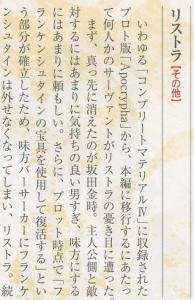 リストラ【その他】
いわゆる「コンプリートマテリアルⅣ」に収録された
プロト版「Apocrypha」から、本編に移行するにあたっ
て何人かのサーヴァントがリストラの憂き目に遭った。
まず、真っ先に消えたのが坂田金時。主人公側と敵
対するにはあまりに気持ちの良い男すぎ、味方にする
にはあまりに頼もしい。さらに、プロット時点で「フ
ランケンシュタインの宝具を使用して復活する」とい
う部分が確立したため、味方バーサーカーにフランケ
ンシュタインは外せなくなってしまい、リストラ。続